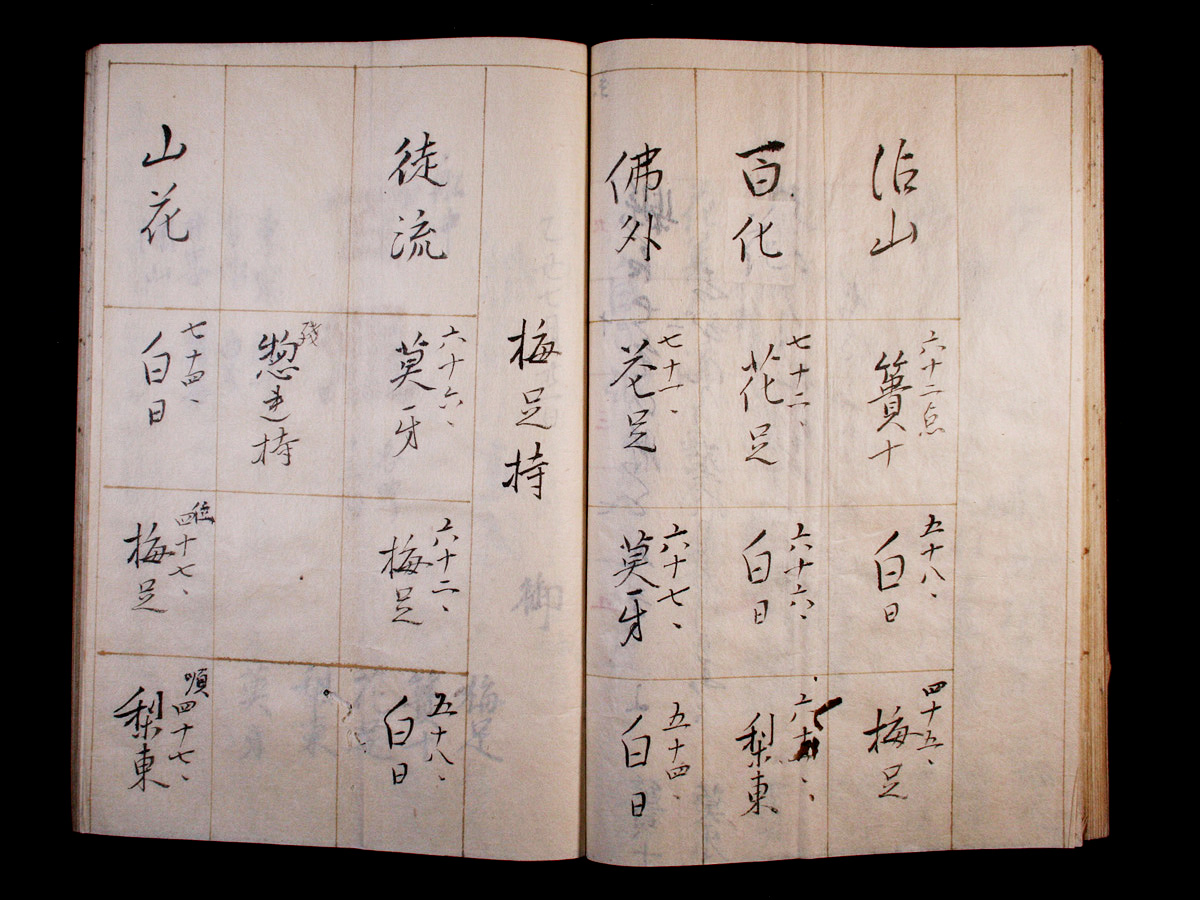 沾山
六十二点
簣十
五十八、
白日
四十五、
梅足
百化
七十二、
花足
六十六、
白日
梨東
佛外
七十一、
花足
六十七、
莫牙
五十四、
白日
梅足持
徒流
六十六、
莫牙
六十二、
梅足
五十八、
白日
残
惣連持
山花
七十四、
白日
位四十七、
梅足
順四十七、
梨東